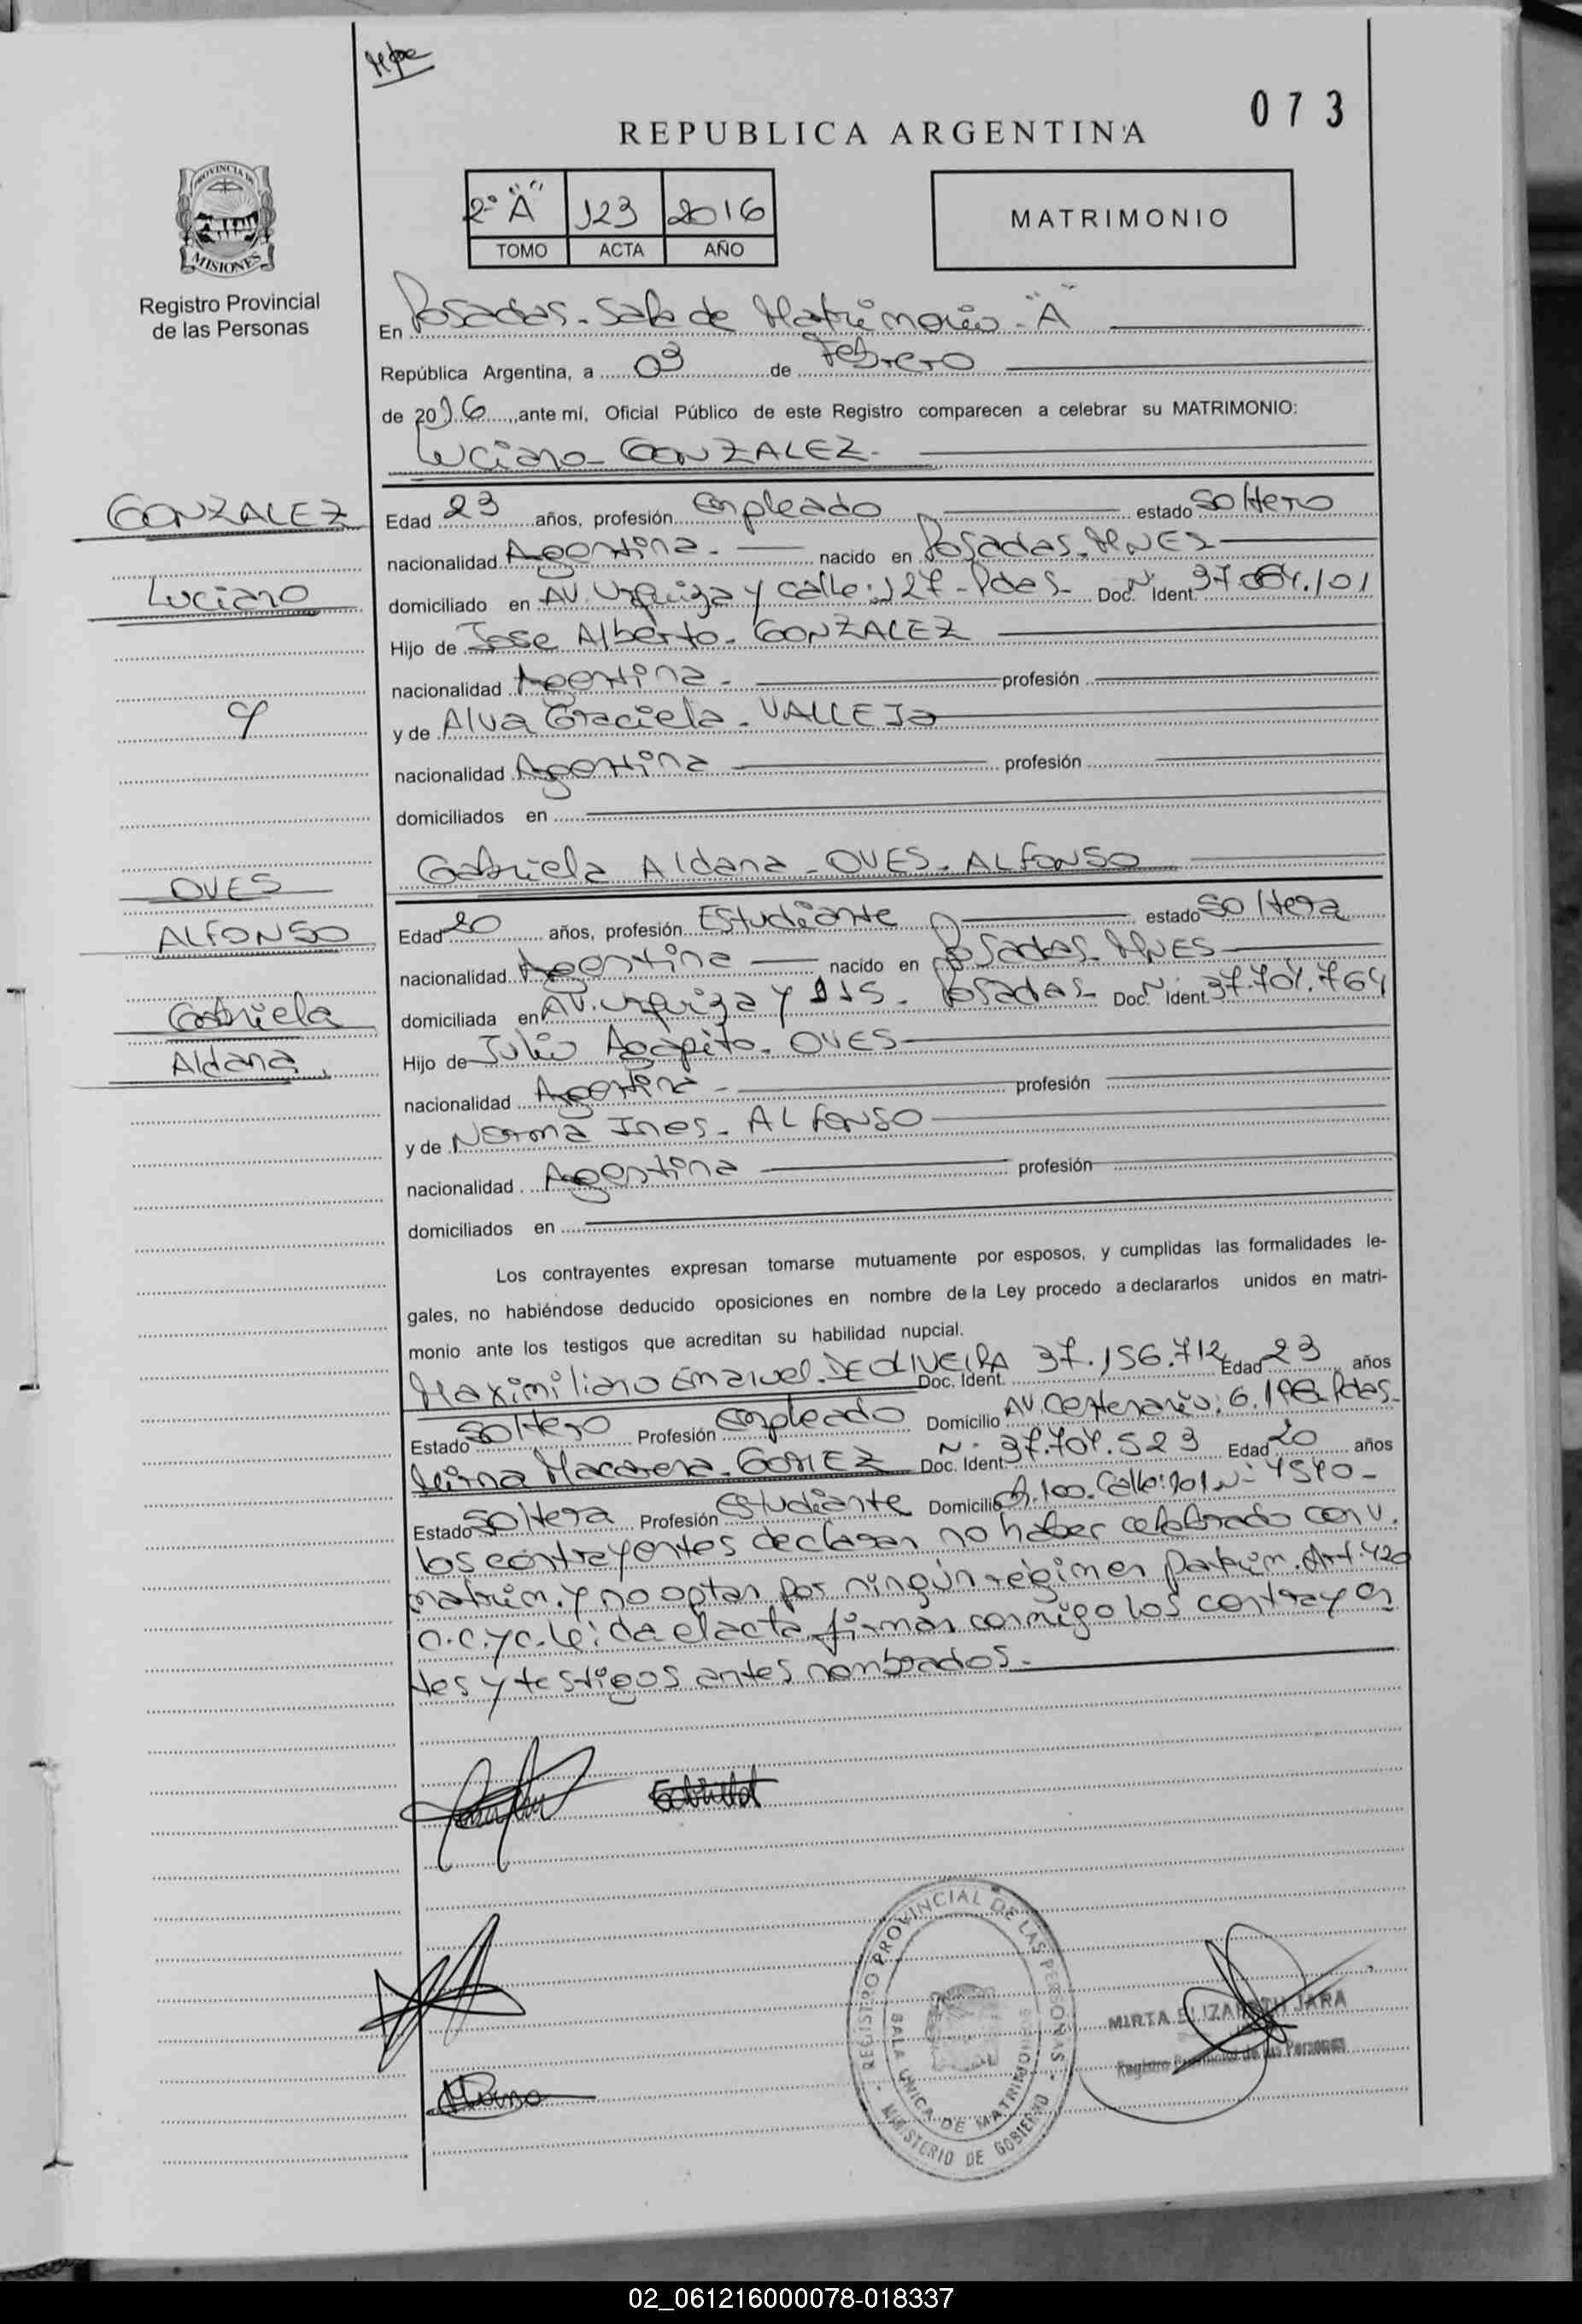 073
REPUBLICA ARGENTINA
2º "A" 123 2016
TOMO ACTA AÑO
MATRIMONIO
PROVINCIA DE
MISIONES
Registro Provincial
de las Personas
En Posadas - Sala de Matrimonio - "A"
República Argentina, a 03 de Febrero
de 2016, ante mí, Oficial Público de este Registro comparecen a celebrar su MATRIMONIO:
Luciano - GONZALEZ -
GONZALEZ
Luciano
Edad 23 años, profesión Empleado estado Soltero
nacionalidad Argentina - nacido en Posadas - MNES
domiciliado en AV. Urquiza y calle: 127 - Pdas - Doc. Nº Ident.
Hijo de Jose Alberto - GONZALEZ
nacionalidad Argentina - profesión
y de Alva Graciela - VALLEJO
nacionalidad Argentina profesión
domiciliados en
Gabriela Aldana - OVES - ALFONSO
OVES
ALFONSO
Gabriela
Aldana
Edad 20 años, profesión Estudiante estado Soltera
nacionalidad Argentina nacido en Posadas - MNES
domiciliada en AV. Urquiza y 115 - Posadas - Doc. Nº Ident. 37.704.764
Hijo de Julio Agapito - OVES
nacionalidad Argentina - profesión
y de Norma Ines - ALFONSO
nacionalidad Argentina profesión
domiciliados en
Los contrayentes expresan tomarse mutuamente por esposos, y cumplidas las formalidades le-
gales, no habiéndose deducido oposiciones en nombre de la Ley procedo a declararlos unidos en matri-
monio ante los testigos que acreditan su habilidad nupcial.
Maximiliano Emanuel - DE OLIVEIRA Doc. Ident. 37.156.712 Edad 23 años
Estado Soltero Profesión Empleado Domicilio AV. Centenario: Pdas -
Mirna Macarena - GOMEZ Doc. Ident. Nº 37.704.523 Edad 20 años
Estado Soltera Profesión Estudiante Domicilio Nº 4540 -
los contrayentes declaran no haber celebrado conv.
matrim. y no optan por ningún regimen patrim. Art. 420
C.C. y C. Leida el acta firman conmigo los contrayen
tes y testigos antes nombrados -
REGISTRO PROVINCIAL DE LAS PERSONAS
SALA UNICA DE MATRIMONIOS
MINISTERIO DE GOBIERNO
MIRTA ELIZABETH JARA
Registro Provincial de las Personas
02_061216000078-018337